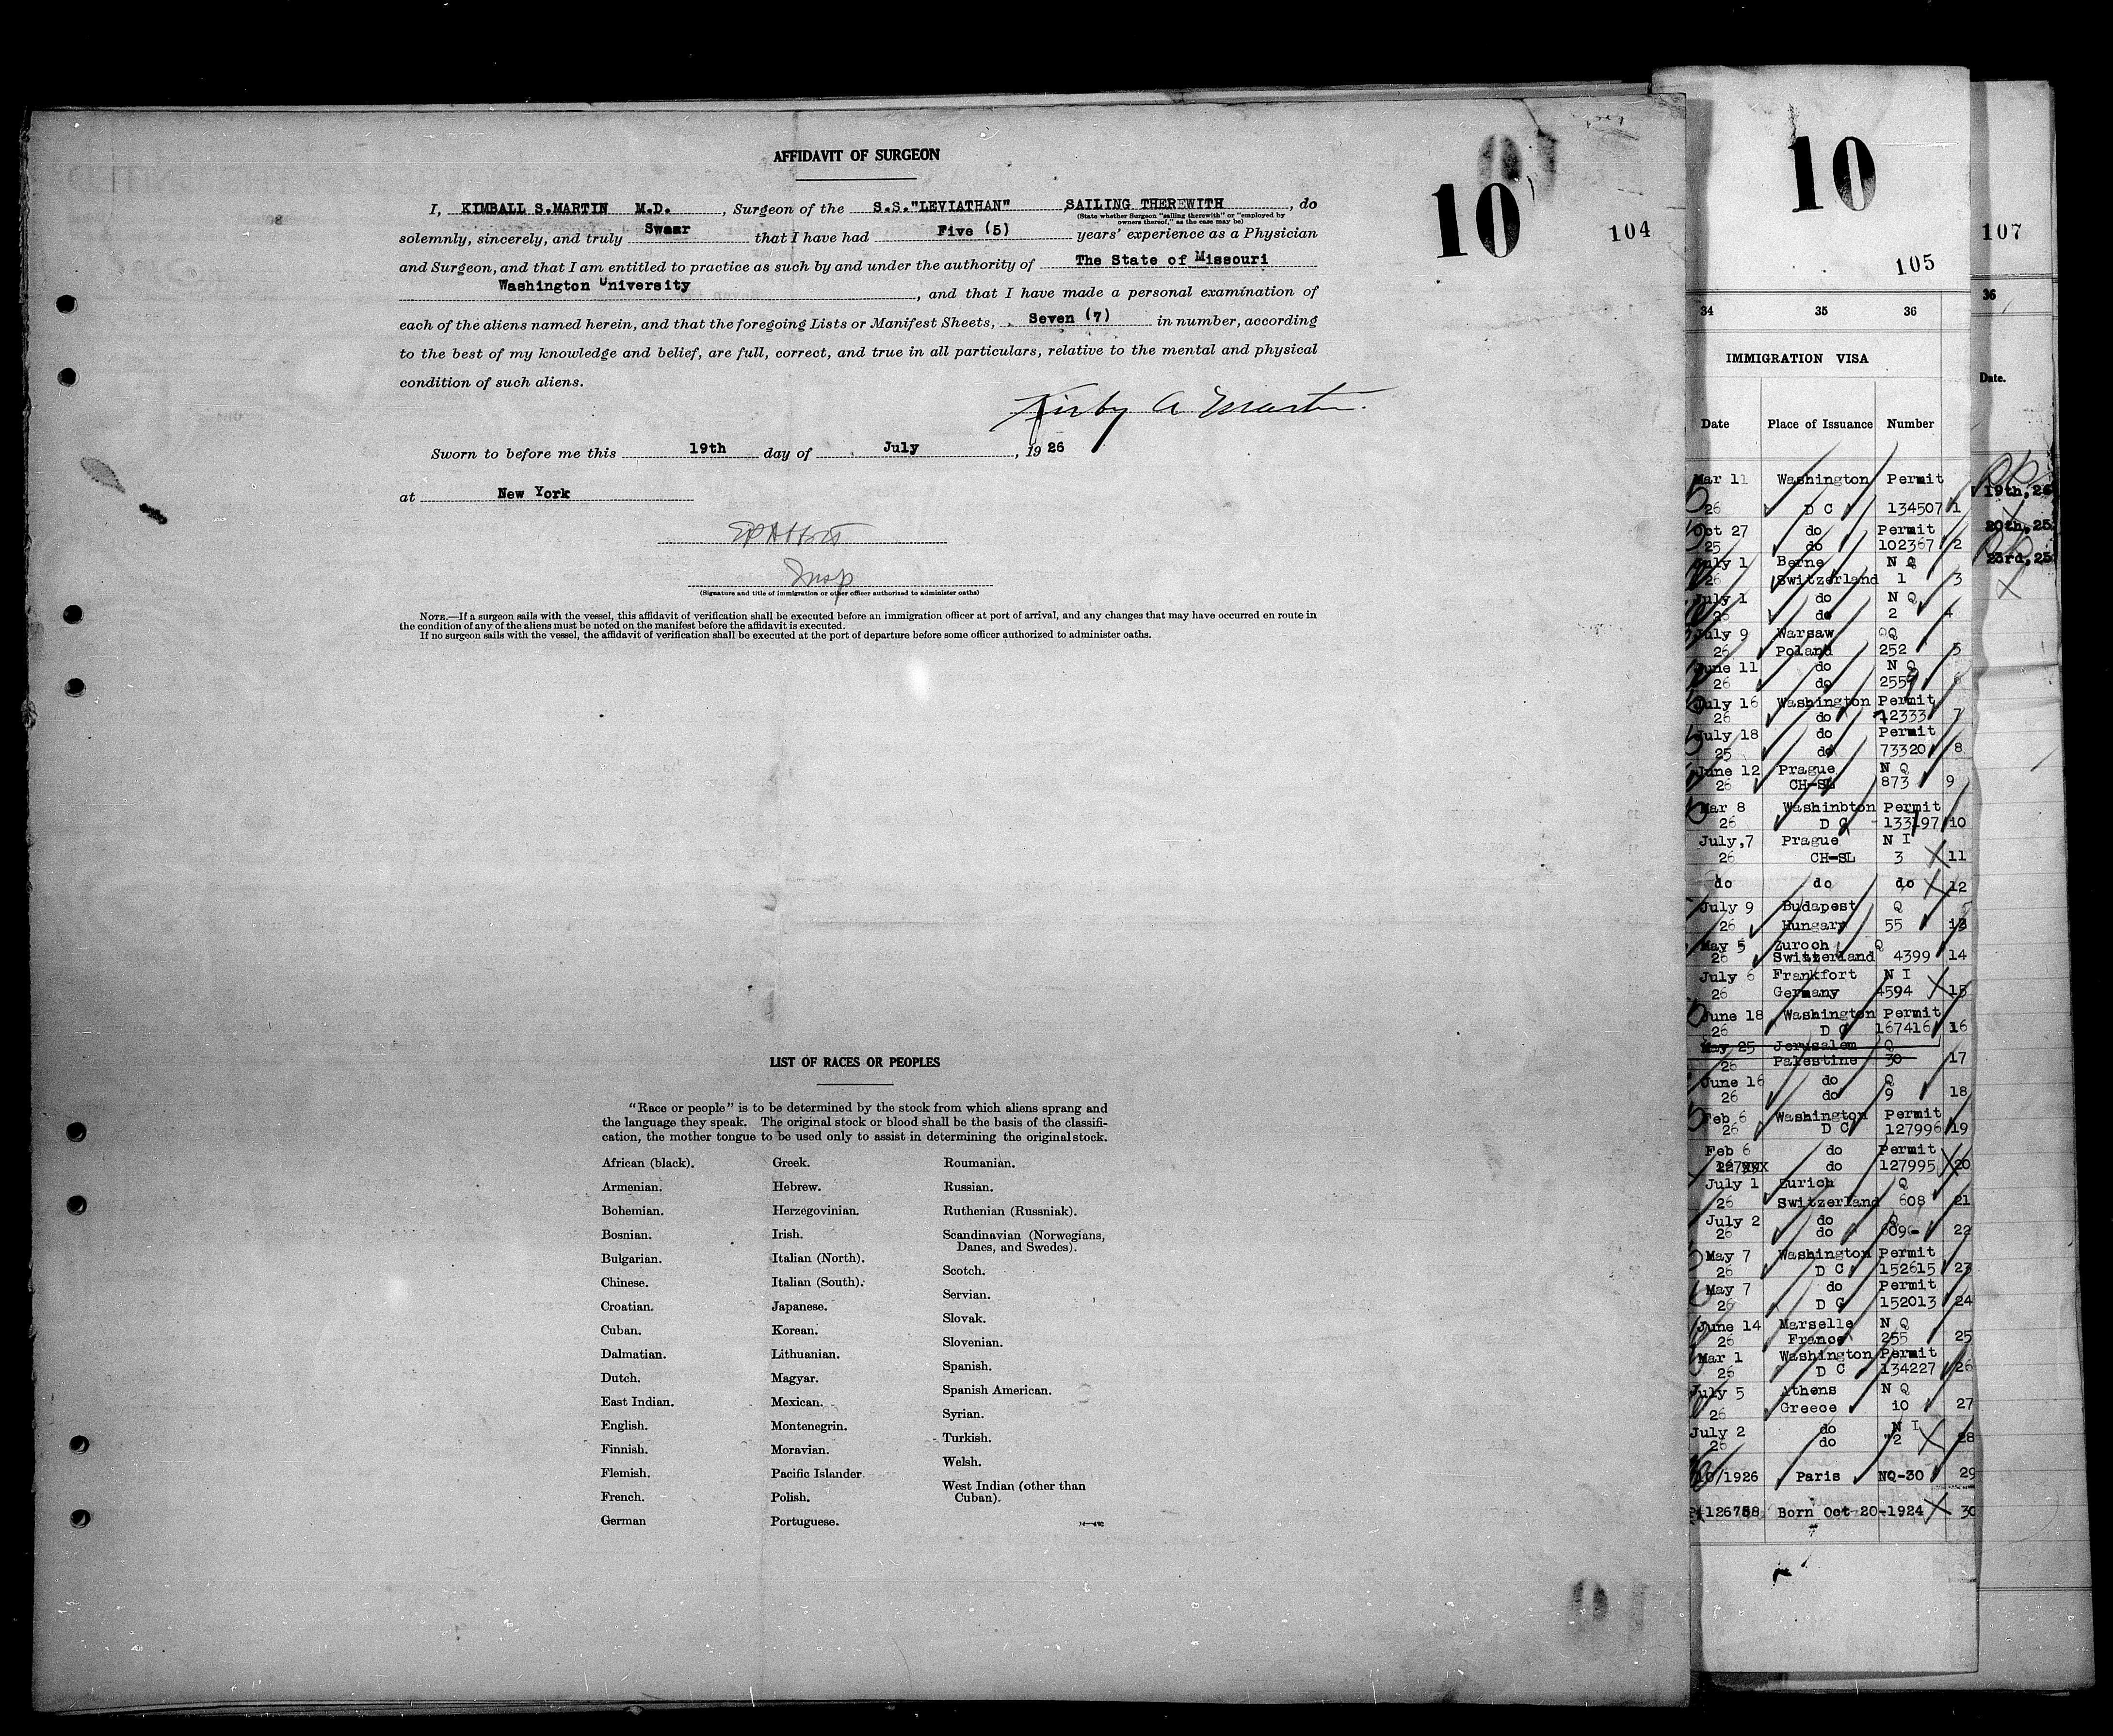 AFFIDAVIT OF SURGEON
I, KIMBALL S.MARTIN M.D. , Surgeon of the S.S."LEVIATHAN" SAILING THEREWITH , do
(State whether Surgeon "sailing therewith" or "employed by
owners thereof," as the case may be)
solemnly, sincerely, and truly Swaar that I have had Five (5) years' experience as a Physician
and Surgeon, and that I am entitled to practice as such by and under the authority of The State of Missouri
Washington University , and that I have made a personal examination of
each of the aliens named herein, and that the foregoing Lists or Manifest Sheets, Seven (7) in number, according
to the best of my knowledge and belief, are full, correct, and true in all particulars, relative to the mental and physical
condition of such aliens.
Kirby A Martin.
Sworn to before me this 19th day of July , 19 26
at New York
Insp
(Signature and title of immigration or other officer authorized to administer oaths)
NOTE.—If a surgeon sails with the vessel, this affidavit of verification shall be executed before an immigration officer at port of arrival, and any changes that may have occurred en route in
the condition of any of the aliens must be noted on the manifest before the affidavit is executed.
If no surgeon sails with the vessel, the affidavit of verification shall be executed at the port of departure before some officer authorized to administer oaths.
10
104
LIST OF RACES OR PEOPLES
"Race or people" is to be determined by the stock from which aliens sprang and
the language they speak. The original stock or blood shall be the basis of the classifi-
cation, the mother tongue to be used only to assist in determining the original stock.
African (black).
Armenian.
Bohemian.
Bosnian.
Bulgarian.
Chinese.
Croatian.
Cuban.
Dalmatian.
Dutch.
East Indian.
English.
Finnish.
Flemish.
French.
German
Greek.
Hebrew.
Herzegovinian.
Irish.
Italian (North).
Italian (South).
Japanese.
Korean.
Lithuanian.
Magyar.
Mexican.
Montenegrin.
Moravian.
Pacific Islander
Polish.
Portuguese.
Roumanian.
Russian.
Ruthenian (Russniak).
Scandinavian (Norwegians,
Danes, and Swedes).
Scotch.
Servian.
Slovak.
Slovenian.
Spanish.
Spanish American.
Syrian.
Turkish.
Welsh.
West Indian (other than
Cuban).
10
105
34 35 36
IMMIGRATION VISA
Date Place of Issuance Number
Mar 11 Washington Permit
26 D C 134507 1
Oct 27 do Permit
25 do 102367 2
July 1 Berne N Q
26 Switzerland 1 3
July 1 do N Q
26 do 2 4
July 9 Warsaw QQ
26 Poland 252 5
June 11 do N Q
26 do 255 6
July 16 Washington Permit
26 do 12333 7
July 18 do Permit
25 do 73320 8
June 12 Prague N Q
26 CH-SL 873 9
Mar 8 Washinbton Permit
26 D C 133197 10
July,7 Prague N I
26 CH-SL 3 11
do do do 12
July 9 Budapest Q
26 Hungary 55 13
May 5 Zuroch Q
26 Switzerland 4399 14
July 6 Frankfort N I
26 Germany 4594 15
June 18 Washington Permit
26 D C 167416 16
May 25 Jerusalem Q
26 Palestine 30 17
June 16 do Q
26 do 9 18
Feb 6 Washington Permit
26 D C 127996 19
Feb 6 do Permit
do 127995 20
July 1 Zurich Q
26 Switzerland 608 21
July 2 do Q
26 do 609- 22
May 7 Washington Permit
26 D C 152615 23
May 7 do Permit
26 D C 152013 24
June 14 Marselle N Q
26 France 255 25
Mar 1 Washington Permit
26 D C 134227 26
July 5 Athens N Q
26 Greece 10 27
July 2 do N I
26 do "2 28
/1926 Paris NQ-30 29
126758 Born Oct-20-1924 30
107
36
Date.
19th,26
20th,25
23rd,25